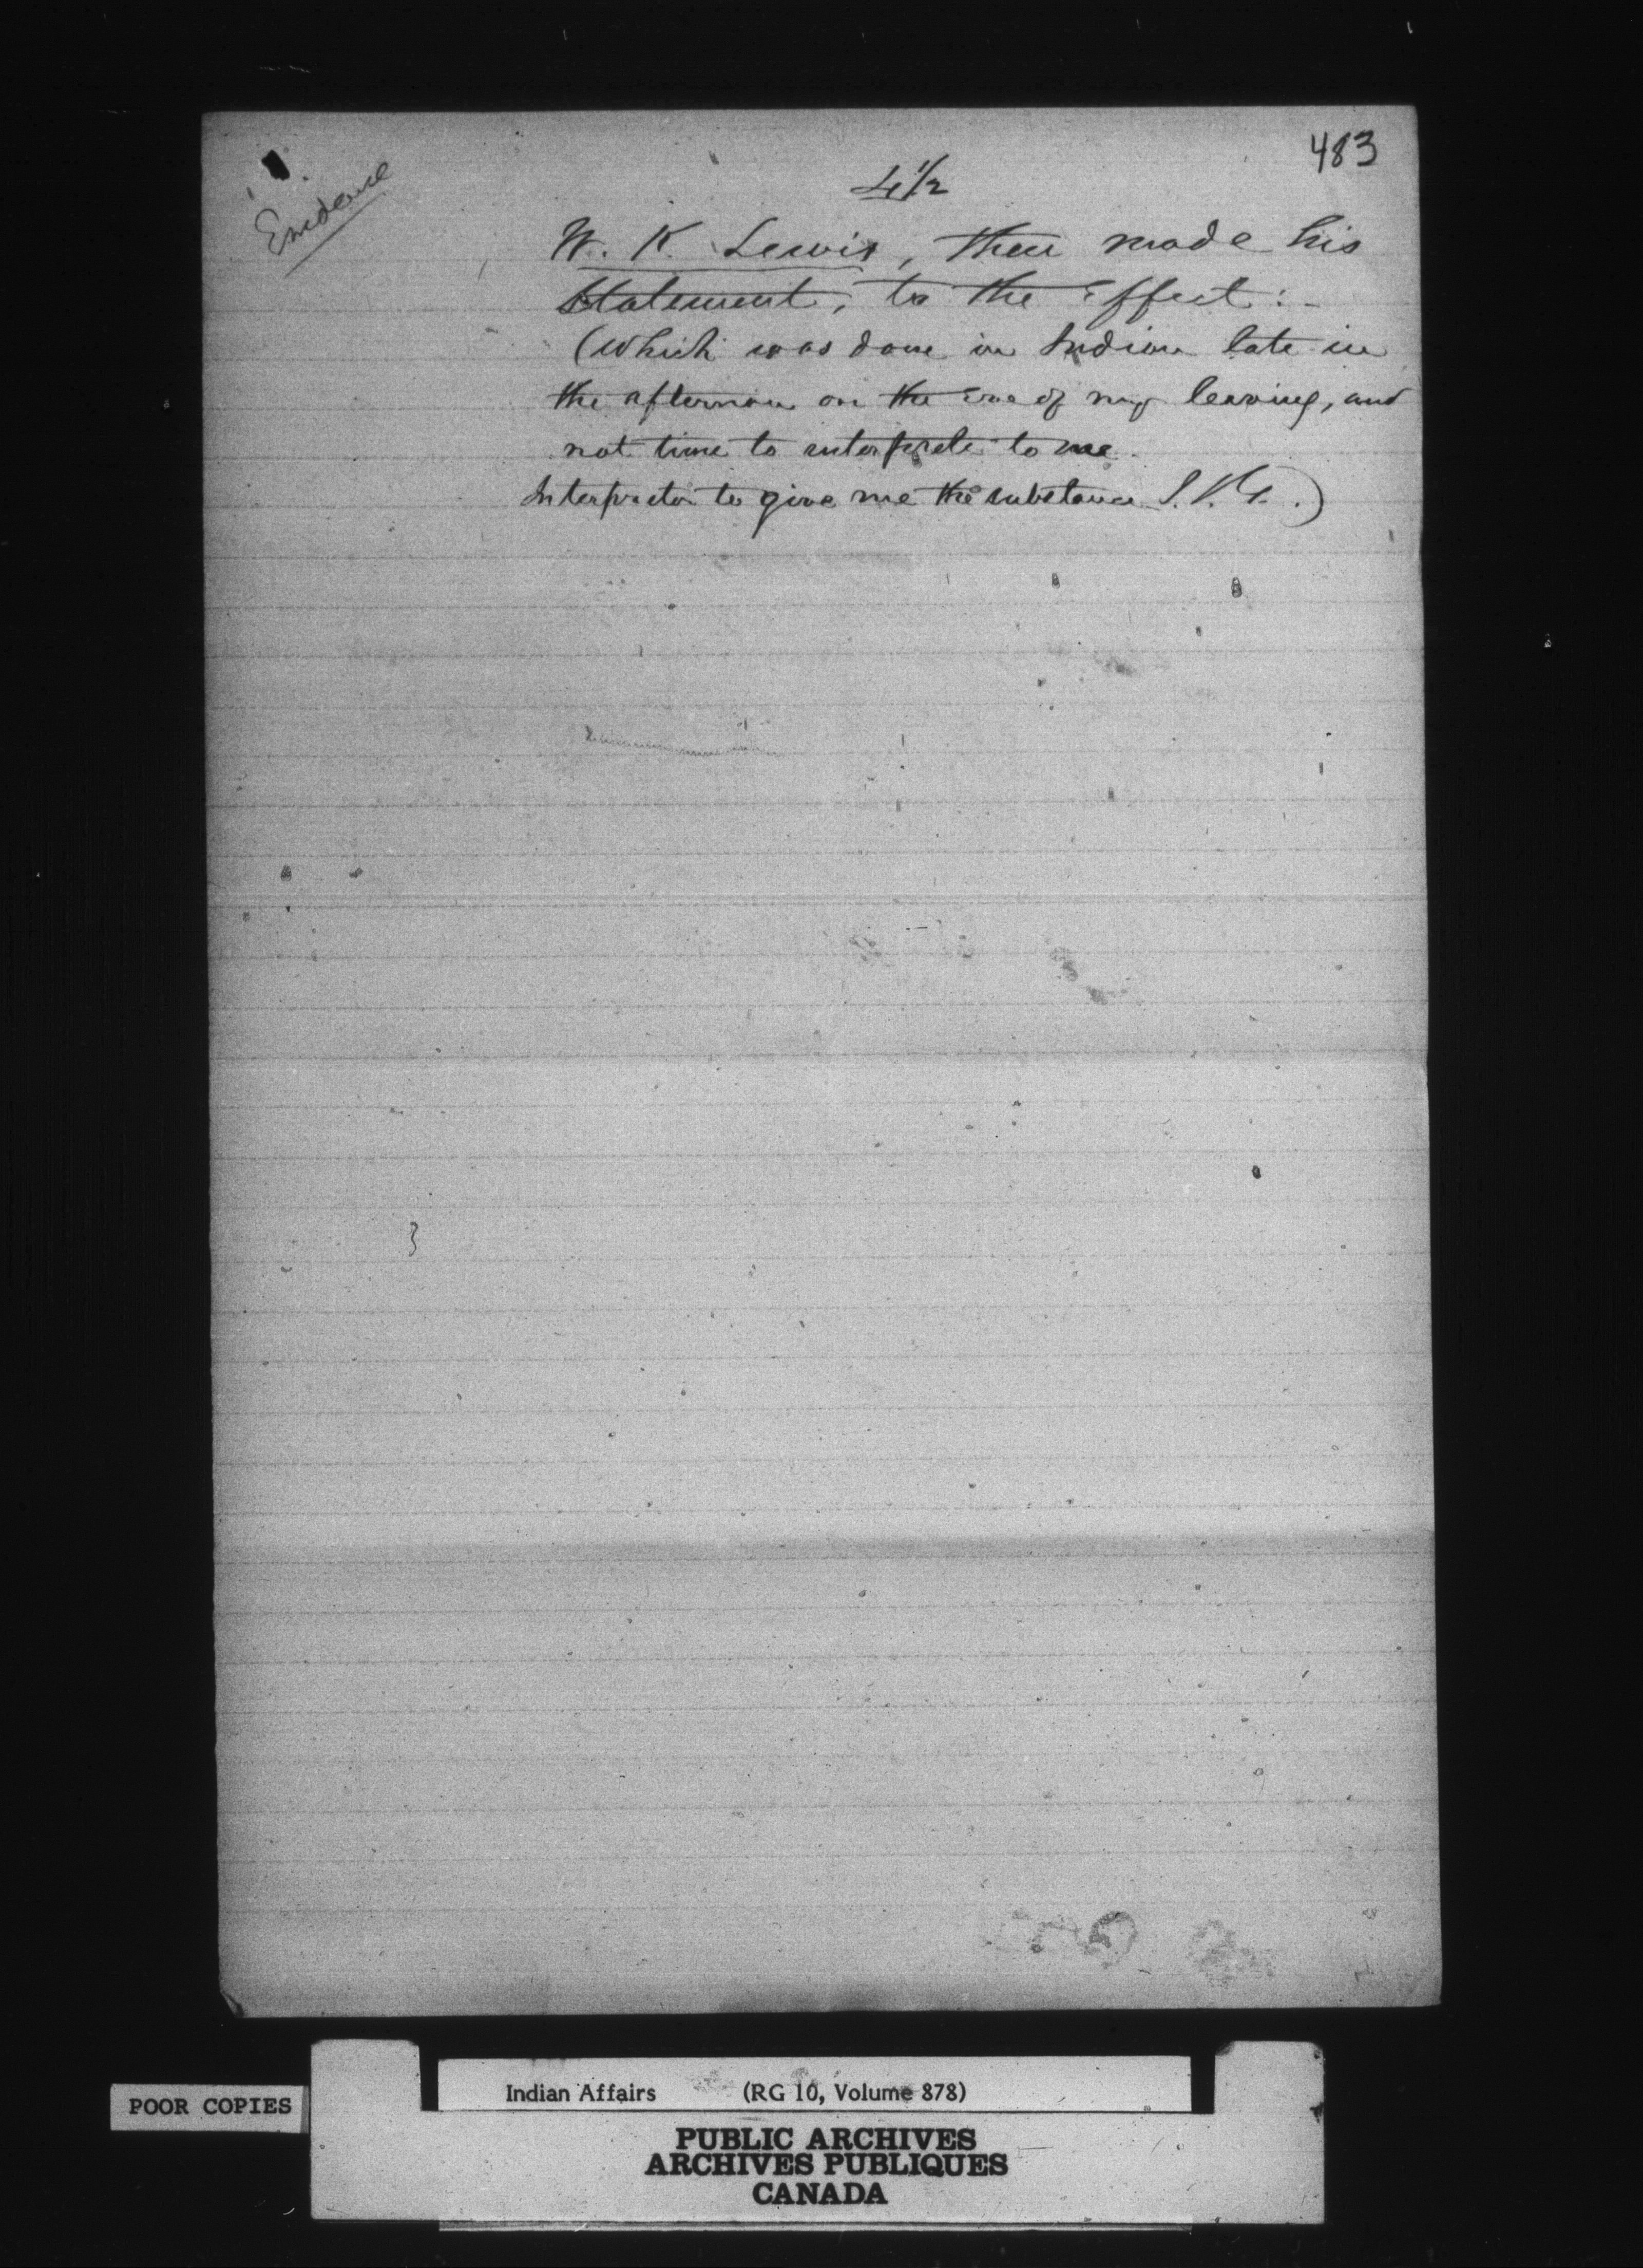 483
Evidence
4 1/2
W. K. Lewis, then made his
Statement, to the Effect:-
(which was done in Indian late in
the afternoon on the Eve of my leaving, and
not time to interprete to me.
Interpreter to give me the substance
POOR COPIES
Indian Affairs (RG 10, Volume 878)
PUBLIC ARCHIVES
ARCHIVES PUBLIQUES
CANADA